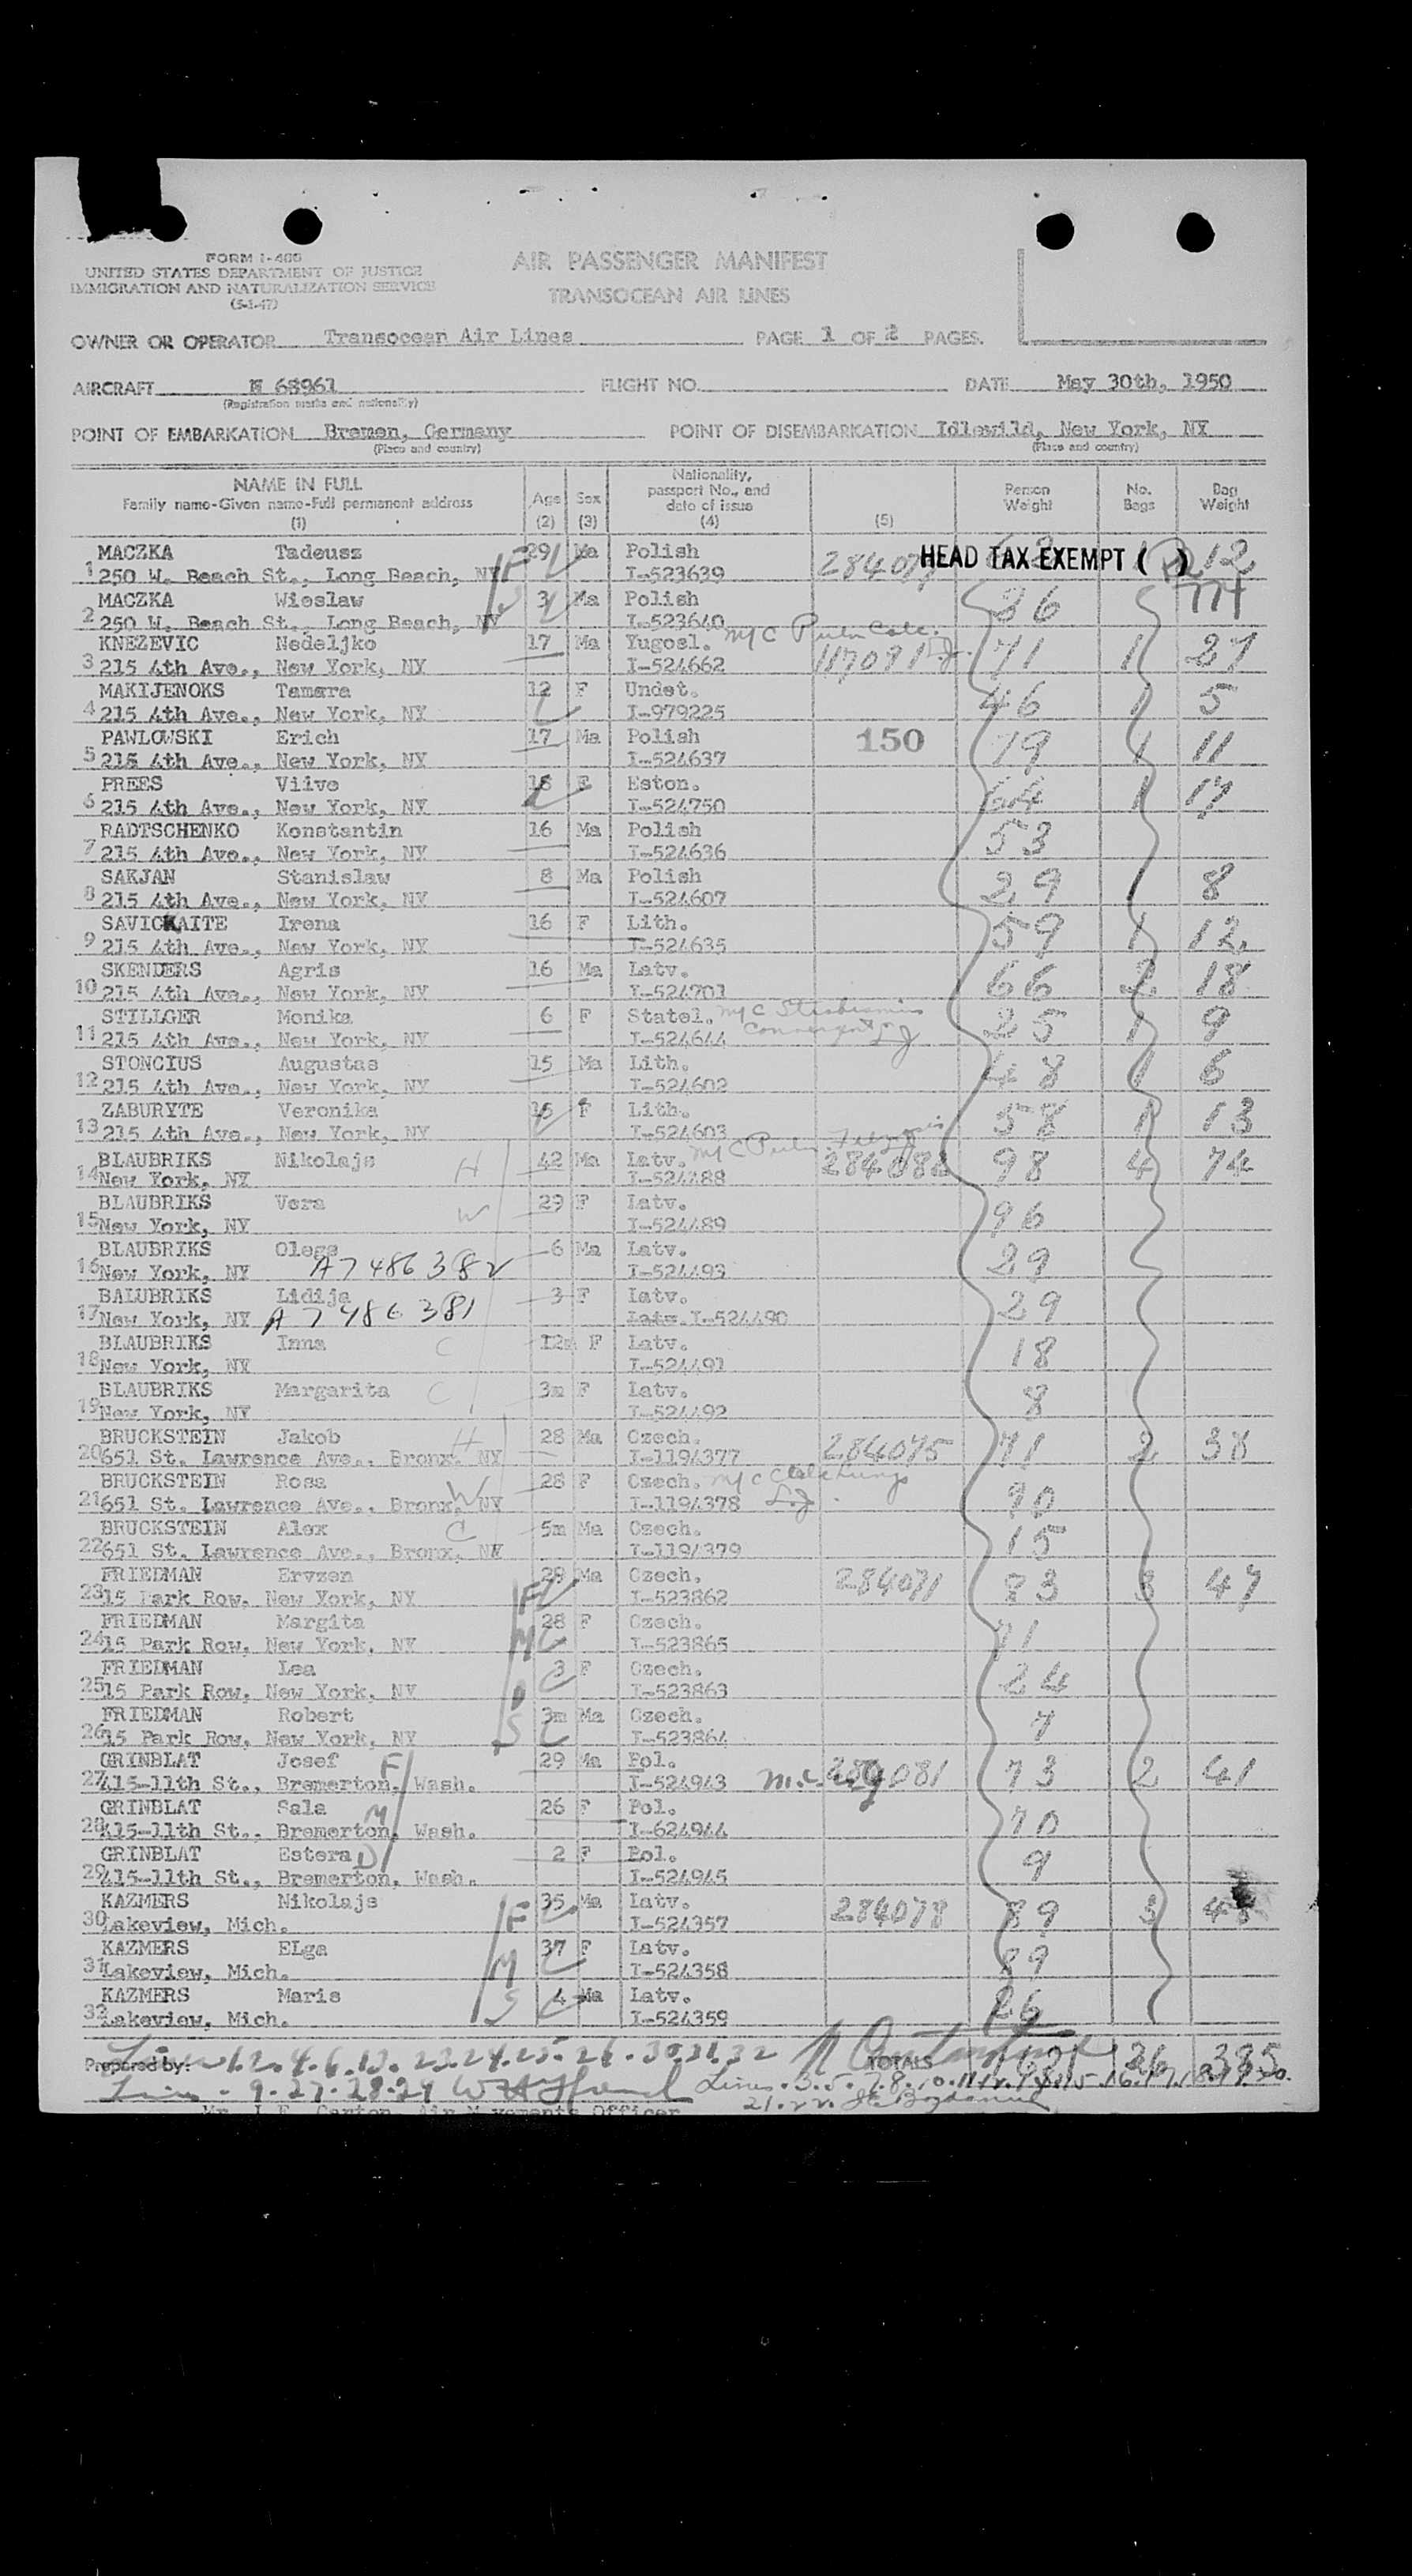 FORM I-466
UNITED STATES DEPARTMENT OF JUSTICE
IMMIGRATION AND NATURALIZATION SERVICE
(5-1-47)
AIR PASSENGER MANIFEST
TRANSOCEAN AIR LINES
OWNER OR OPERATOR Transocean Air Lines PAGE 1 OF 2 PAGES.
AIRCRAFT N 68961 FLIGHT NO. DATE May 30th, 1950
(Registration marks and nationality)
POINT OF EMBARKATION Bremen, Germany POINT OF DISEMBARKATION Idlewild, New York, NY
(Place and country) (Place and country)
NAME IN FULL Age Sex Nationality, passport No., and date of issue Person Weight No. Bags Bag Weight
Family name-Given name-Full permanent address
(1) (2) (3) (4) (5)
MACZKA Tadeusz F 29 Ma Polish HEAD TAX EXEMPT ( ) 1 12
1 250 W. Beach St., Long Beach, NY I-523639
MACZKA Wieslaw S 3 Ma Polish 36
2 250 W. Beach St., Long Beach, NY I-523640
KNEZEVIC Nedeljko 17 Ma Yugosl. 71 1 27
3 215 4th Ave., New York, NY I-524662 117091
MAKIJENOKS Tamara 12 F Undet. 46 1 5
4 215 4th Ave., New York, NY I-979225
PAWLOWSKI Erich 17 Ma Polish 150 79 1 11
5 215 4th Ave., New York, NY I-524637
PREES Viive 18 F Eston. 64 1 17
6 215 4th Ave., New York, NY I-524750
RADTSCHENKO Konstantin 16 Ma Polish 53
7 215 4th Ave., New York, NY I-524636
SAKJAN Stanislaw 8 Ma Polish 29 1 8
8 215 4th Ave., New York, NY I-524607
SAVICKAITE Irena 16 F Lith. 59 1 12
9 215 4th Ave., New York, NY I-524635
SKENDERS Agris 16 Ma Latv. 66 2 18
10 215 4th Ave., New York, NY I-524701
STILLGER Monika 6 F Statel. 25 1 9
11 215 4th Ave., New York, NY I-524644
STONCIUS Augustas 15 Ma Lith. 48 1 6
12 215 4th Ave., New York, NY I-524602
ZABURYTE Veronika 15 F Lith. 58 1 13
13 215 4th Ave., New York, NY I-524603
BLAUBRIKS Nikolajs H 42 Ma Latv. 284082 98 4 74
14 New York, NY I-524488
BLAUBRIKS Vera W 29 F Latv. 96
15 New York, NY I-524489
BLAUBRIKS Olegs 6 Ma Latv. 29
16 New York, NY A7486382 I-524493
BALUBRIKS Lidija 3 F Latv. 29
17 New York, NY A7486381 Latv. I-524490
BLAUBRIKS Inna C 12m F Latv. 18
18 New York, NY I-524491
BLAUBRIKS Margarita C 3m F Latv. 8
19 New York, NY I-524492
BRUCKSTEIN Jakob H 28 Ma Czech. 284075 71 2 38
20 651 St. Lawrence Ave., Bronx, NY I-1194377
BRUCKSTEIN Rosa W 28 F Czech. 90
21 651 St. Lawrence Ave., Bronx, NY I-1194378
BRUCKSTEIN Alex C 5m Ma Czech. 15
22 651 St. Lawrence Ave., Bronx, NY I-1194379
FRIEDMAN Ervzen F 29 Ma Czech. 284071 83 3 47
23 15 Park Row, New York, NY I-523862
FRIEDMAN Margita M 28 F Czech. 71
24 15 Park Row, New York, NY I-523865
FRIEDMAN Lea D 3 F Czech. 24
25 15 Park Row, New York, NY I-523863
FRIEDMAN Robert S 3m Ma Czech. 7
26 15 Park Row, New York, NY I-523864
GRINBLAT Josef F 29 Ma Pol. 284081 73 2 41
27 415-11th St., Bremerton, Wash. I-524943
GRINBLAT Sala M 26 F Pol. 70
28 415-11th St., Bremerton, Wash. I-624944
GRINBLAT Estera D 2 F Pol. 9
29 415-11th St., Bremerton, Wash. I-524945
KAZMERS Nikolajs F 35 Ma Latv. 284078 89 3 48
30 Lakeview, Mich. I-524357
KAZMERS ELga M 37 F Latv. 89
31 Lakeview, Mich. I-524358
KAZMERS Maris S 4 Ma Latv. 26
32 Lakeview, Mich. I-524359
Prepared by: TOTALS
Mr. J.F. Carton, Air Movements Officer